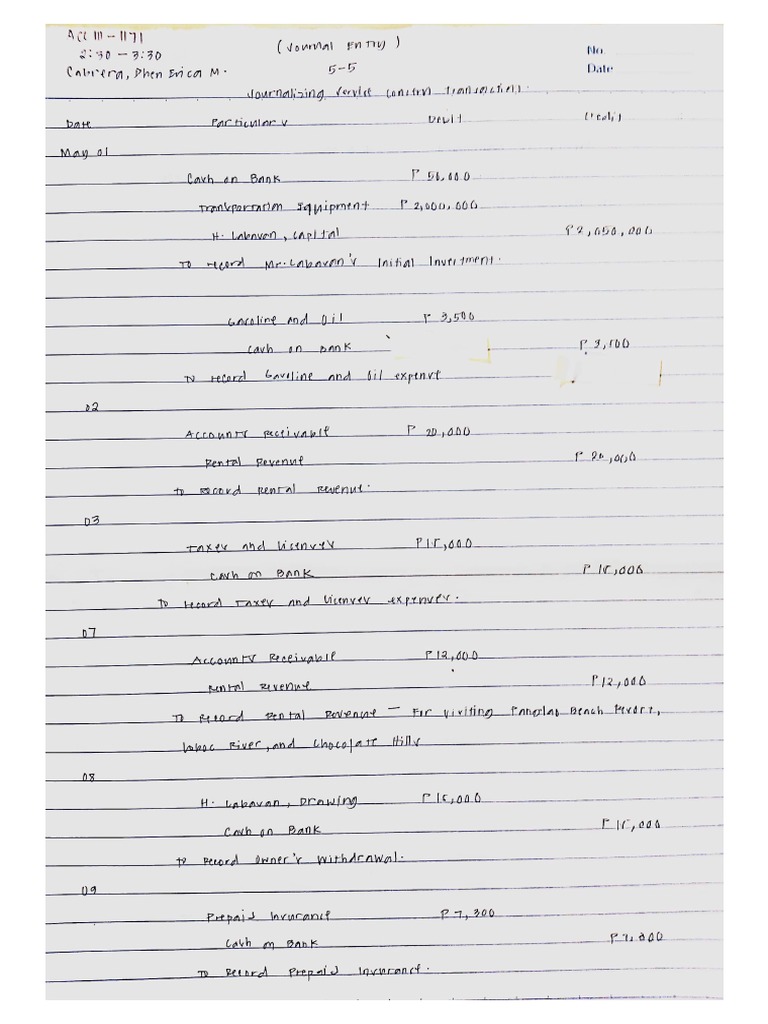 ACC 111 - 1171
2:30 - 3:30
(Journal Entry)
No.
Cabrera, Dhen Erica M.
5-5
Date
Journalizing Service Concern Transactions.
Date Particulars Debit Credit
May 01
Cash on Bank ₱ 50,000
Transportation Equipment ₱ 2,000,000
H. Labavan, Capital ₱2,050,000
To record Mr. Labavan's Initial Investment.
Gasoline and Oil ₱ 3,500
Cash on Bank ₱ 3,500
To record Gasoline and Oil expense
02
Accounts Receivable ₱ 20,000
Rental Revenue ₱ 20,000
To Record Rental Revenue.
03
Taxes and Licenses ₱15,000
Cash on Bank ₱ 15,000
To record Taxes and Licenses expenses.
07
Accounts Receivable ₱12,000
Rental Revenue ₱12,000
To Record Rental Revenue - For Visiting Panglao Beach Resort,
Loboc River, and Chocolate Hills
08
H. Labavan, Drawing ₱15,000
Cash on Bank ₱15,000
To Record Owner's Withdrawal.
09
Prepaid Insurance ₱ 7,300
Cash on Bank ₱7,300
To Record Prepaid Insurance.